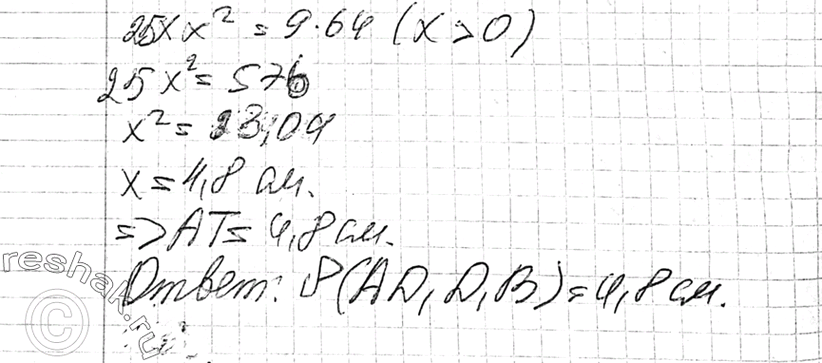 25x x² = 9·64 (x > 0)
25x² = 576
x² = 23,04
x = 4,8 см.
=> AT = 4,8 см.
Ответ: P(AD, D, B) = 4,8 см.
reshak.ru
©